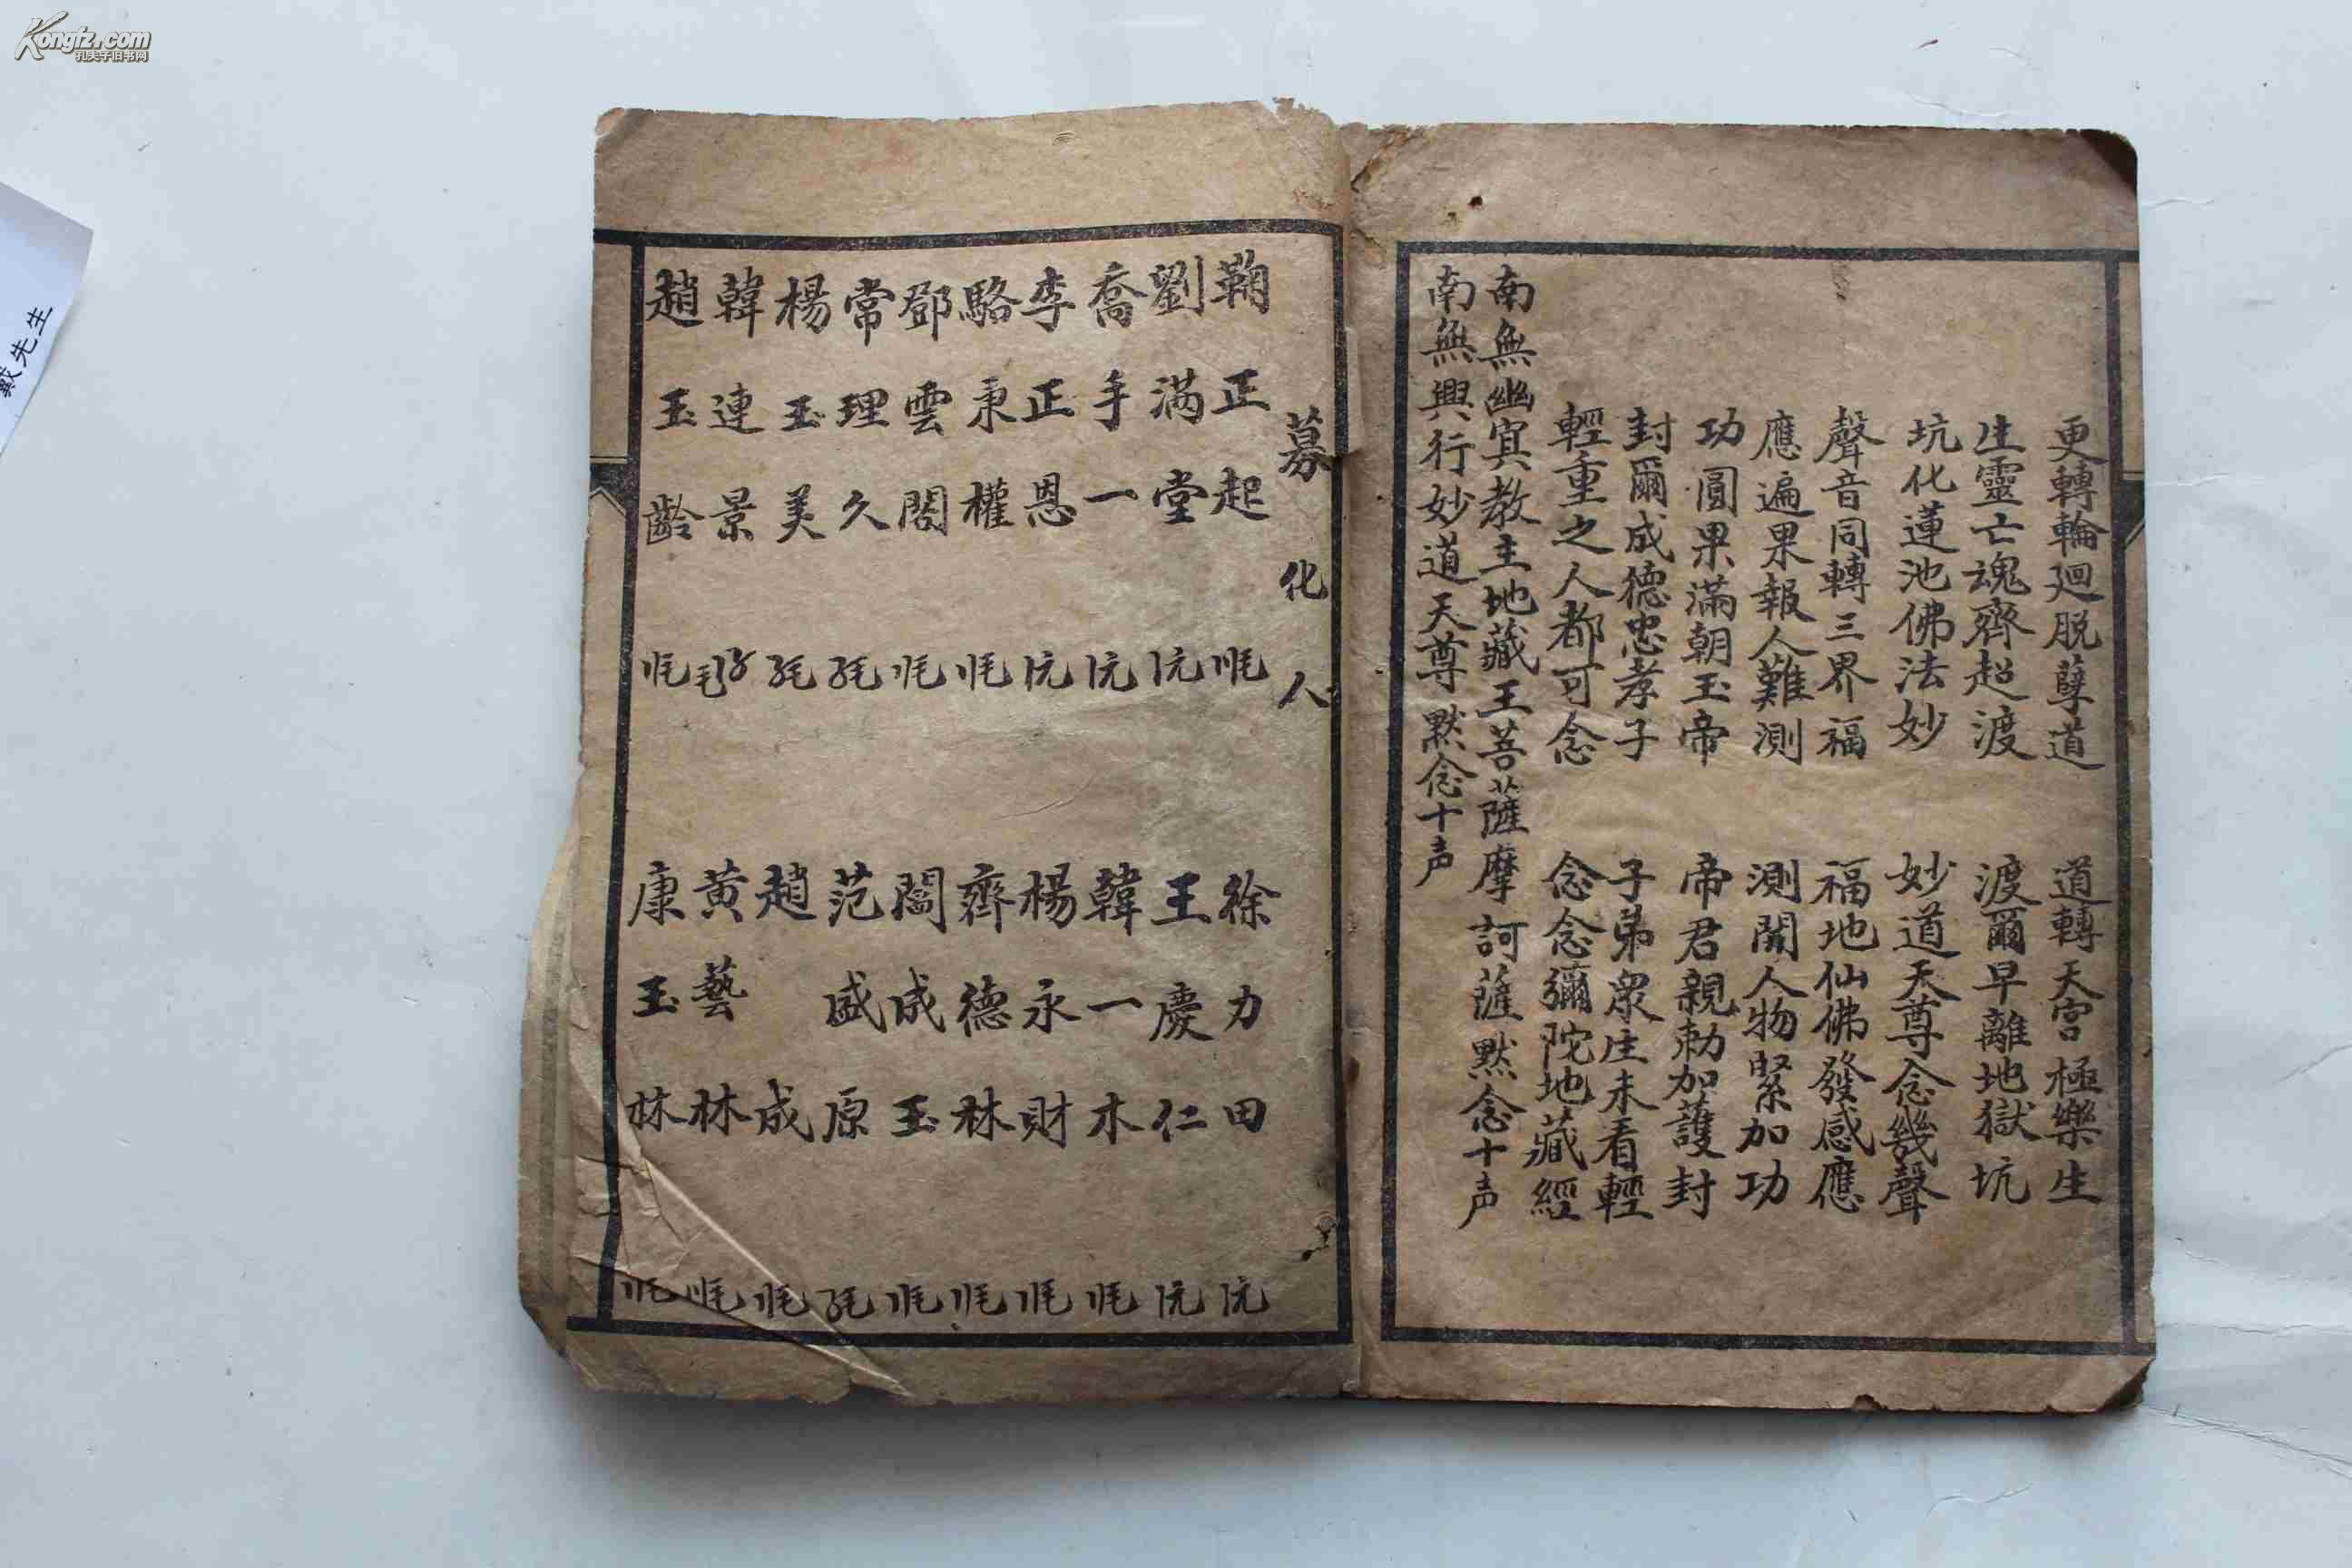 更轉輪廻脫孽道 道轉天宮極樂生
生靈亡魂齊超渡 渡爾早離地獄坑
坑化蓮池佛法妙 妙道天尊念幾聲
聲音同轉三界福 福地仙佛發感應
應遍果報人難測 測開人物緊加功
功圓果滿朝玉帝 帝君親勅加護封
封爾成德忠孝子 子弟衆生未看輕
輕重之人都可念 念念彌陀地藏經
南無幽冥教主地藏王菩薩摩訶薩默念十声
南無興行妙道天尊默念十声
募化人
鞠正起 徐力田
劉满堂 王慶仁
喬手一 韓一木
李正恩 楊永財
駱秉權 齊德林
鄧雲閣 閻成玉
常理久 范盛原
楊玉美 趙成
韓連景 黃藝林
趙玉齡 康玉林
戴先生
Kongfz.com
孔夫子旧书网